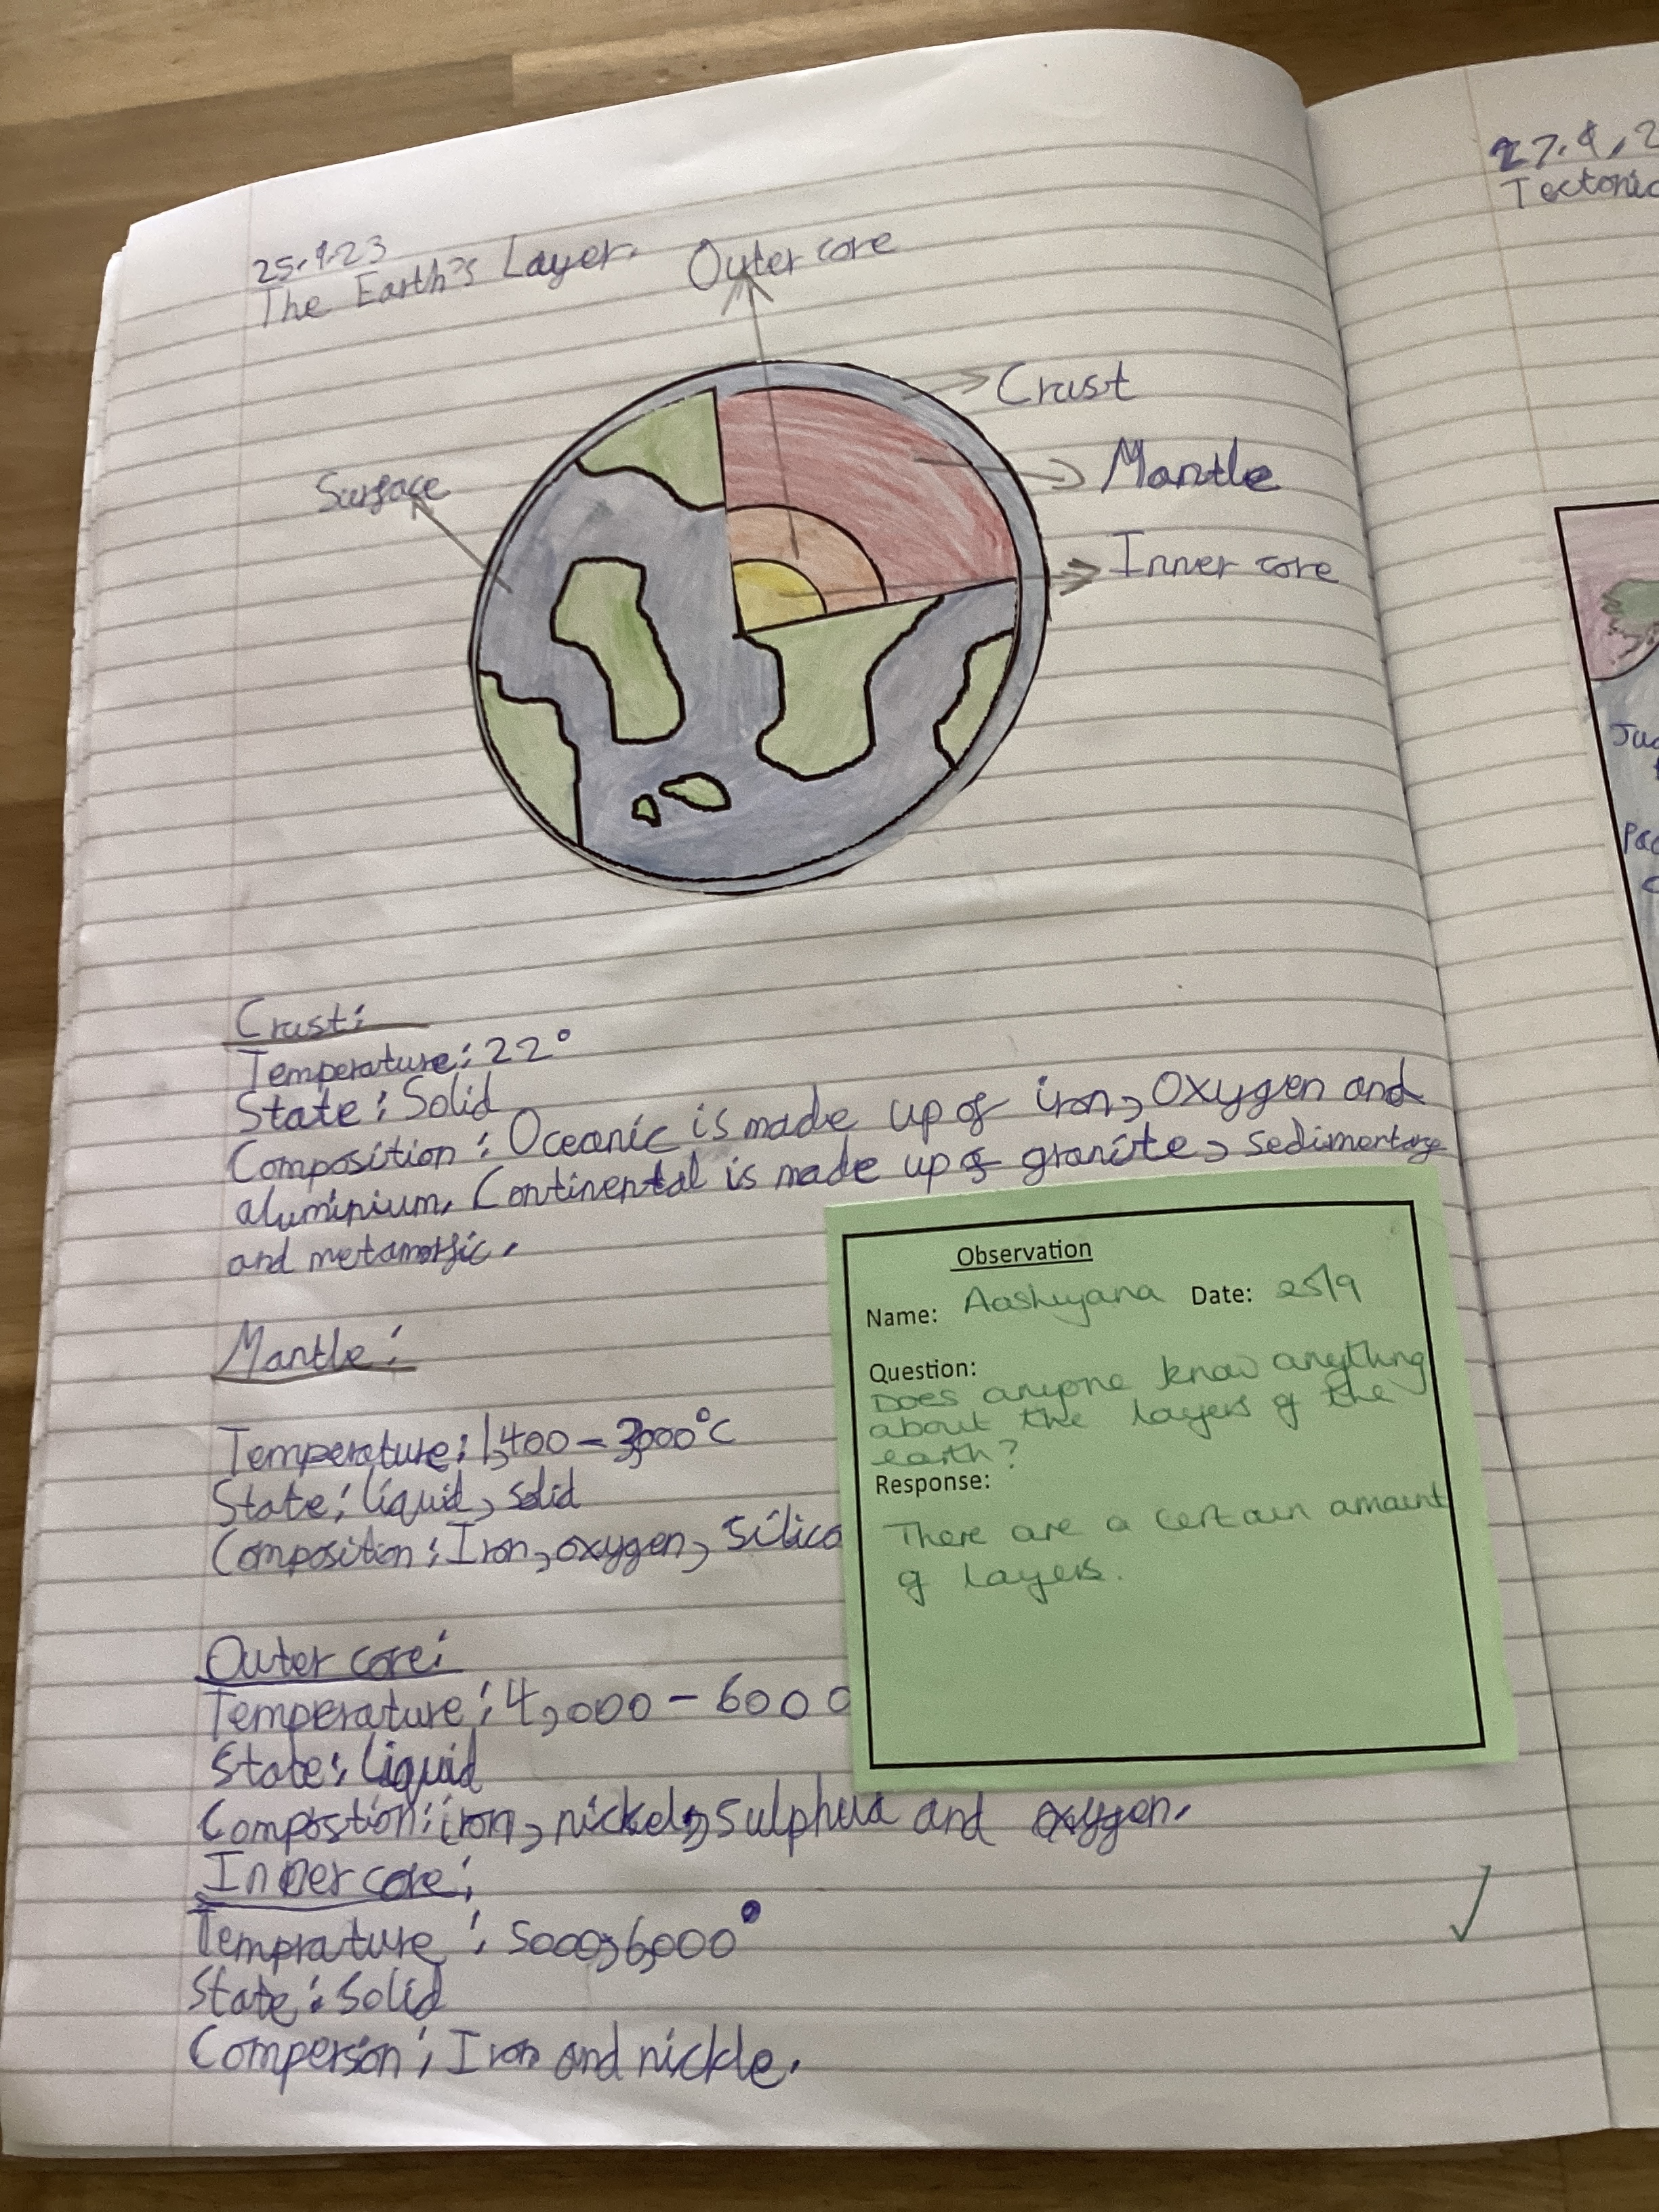 25.9.23
The Earth's Layer.
Outer core
Crust
Mantle
Surface
Inner core
Crust:
Temperature: 22°
State: Solid
Composition: Oceanic is made up of iron, Oxygen and
aluminium. Continental is made up of granite, sedimentary
and metamorfic.
Mantle:
Temperature: 1,400 - 3,000°C
State: liquid, solid
Composition: Iron, oxygen, Silico
Outer core:
Temperature: 4,000 - 6000
State: liquid
Compostion: iron, nickel, Sulphua and oxygen.
Inner core:
Temprature: 5000,6,000°
State: Solid
Comperson: Iron and nickle.
Observation
Name: Aashiyana Date: 25/9
Question:
Does anyone know anything
about the layers of the
earth?
Response:
There are a certain amount
of layers.
27.9.2
Tectonic